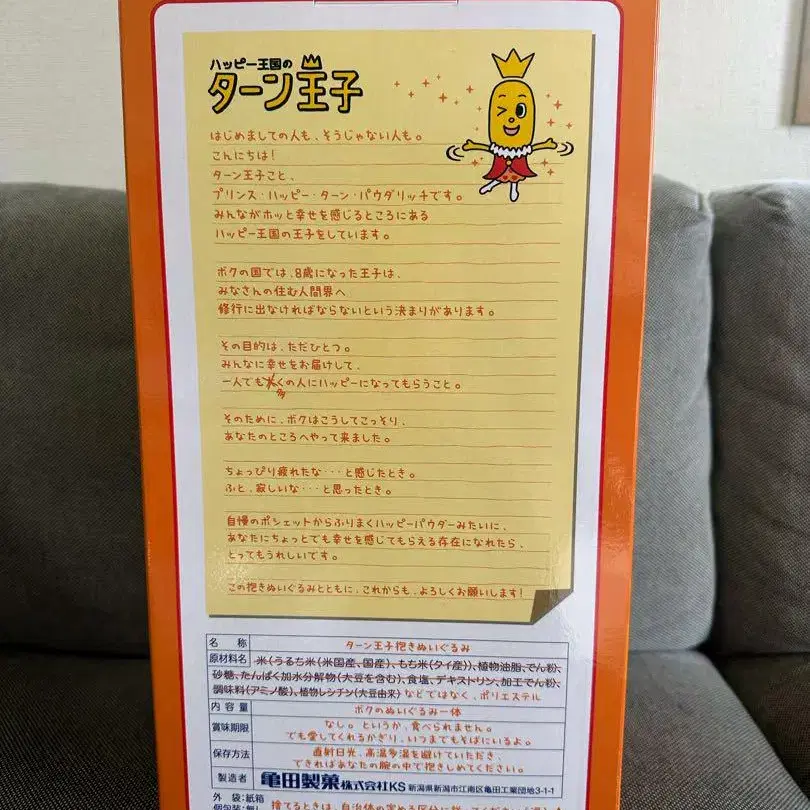 ハッピー王国の
ターン王子
はじめましての人も、そうじゃない人も。
こんにちは!
ターン王子こと、
プリンス・ハッピー・ターン・パウダリッチです。
みんながホッと幸せを感じるところにある
ハッピー王国の王子をしています。
ボクの国では、8歳になった王子は、
みなさんの住む人間界へ
修行に出なければならないという決まりがあります。
その目的は、ただひとつ。
みんなに幸せをお届けして、
一人でも多くの人にハッピーになってもらうこと。
そのために、ボクはこうしてこっそり、
あなたのところへやって来ました。
ちょっぴり疲れたな・・・と感じたとき。
ふと、寂しいな・・・と思ったとき。
自慢のポシェットからふりまくハッピーパウダーみたいに、
あなたにちょっとでも幸せを感じてもらえる存在になれたら、
とってもうれしいです。
この抱きぬいぐるみとともに、これからも、よろしくお願いします!
名称 ターン王子抱きぬいぐるみ
原材料名 米(うるち米(米国産、国産)、もち米(タイ産))、植物油脂、でん粉、
砂糖、たんぱく加水分解物(大豆を含む)、食塩、デキストリン、加工でん粉、
調味料(アミノ酸)、植物レシチン(大豆由来) などではなく、ポリエステル
内容量 ボクのぬいぐるみ一体
賞味期限 なし。というか、食べられません。
でも愛してくれるかぎり、いつまでもそばにいるよ。
保存方法 直射日光、高温多湿を避けていただき、
できればあなたの腕の中で抱きしめてください。
製造者 亀田製菓株式会社KS 新潟県新潟市江南区亀田工業団地3-1-1
外 袋:紙箱